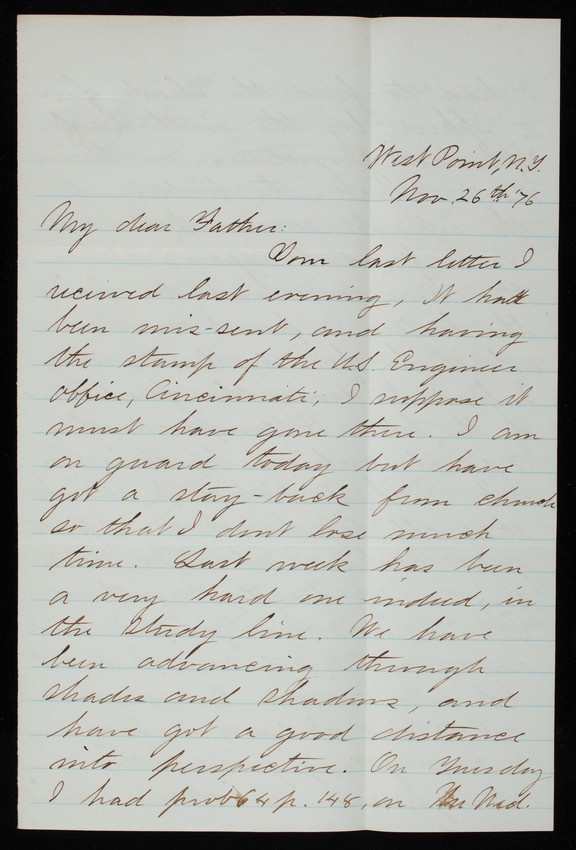 West Point, N.Y.
Nov. 26th '76
My dear Father:
Your last letter I
received last evening, It had
been mis-sent, and having
the stamp of the U.S. Engineer
office, Cincinnati, I suppose it
must have gone there. I am
on guard today but have
got a stay-back from church
so that I dont lose much
time. Last week has been
a very hard one indeed, in
the study line. We have
been advancing through
shades and shadows, and
have got a good distance
into perspective. On Tuesday
I had prob 64 p. 148, on Wed.